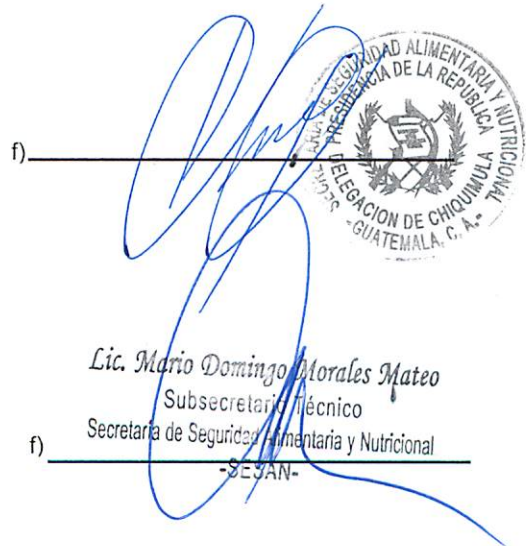 SECRETARIA DE SEGURIDAD ALIMENTARIA Y NUTRICIONAL
PRESIDENCIA DE LA REPUBLICA
DELEGACION DE CHIQUIMULA
-GUATEMALA, C. A.-
f)
Lic. Mario Domingo Morales Mateo
Subsecretario Técnico
Secretaria de Seguridad Alimentaria y Nutricional
f)
-SESAN-